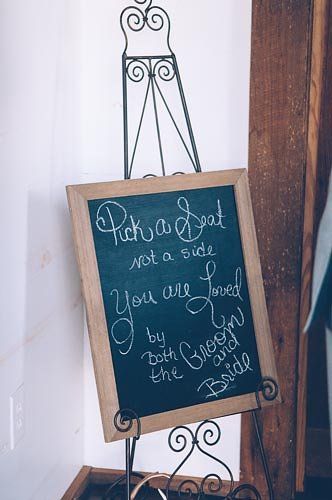 Pick a Seat
not a side
You are Loved
by Both the Groom and Bride